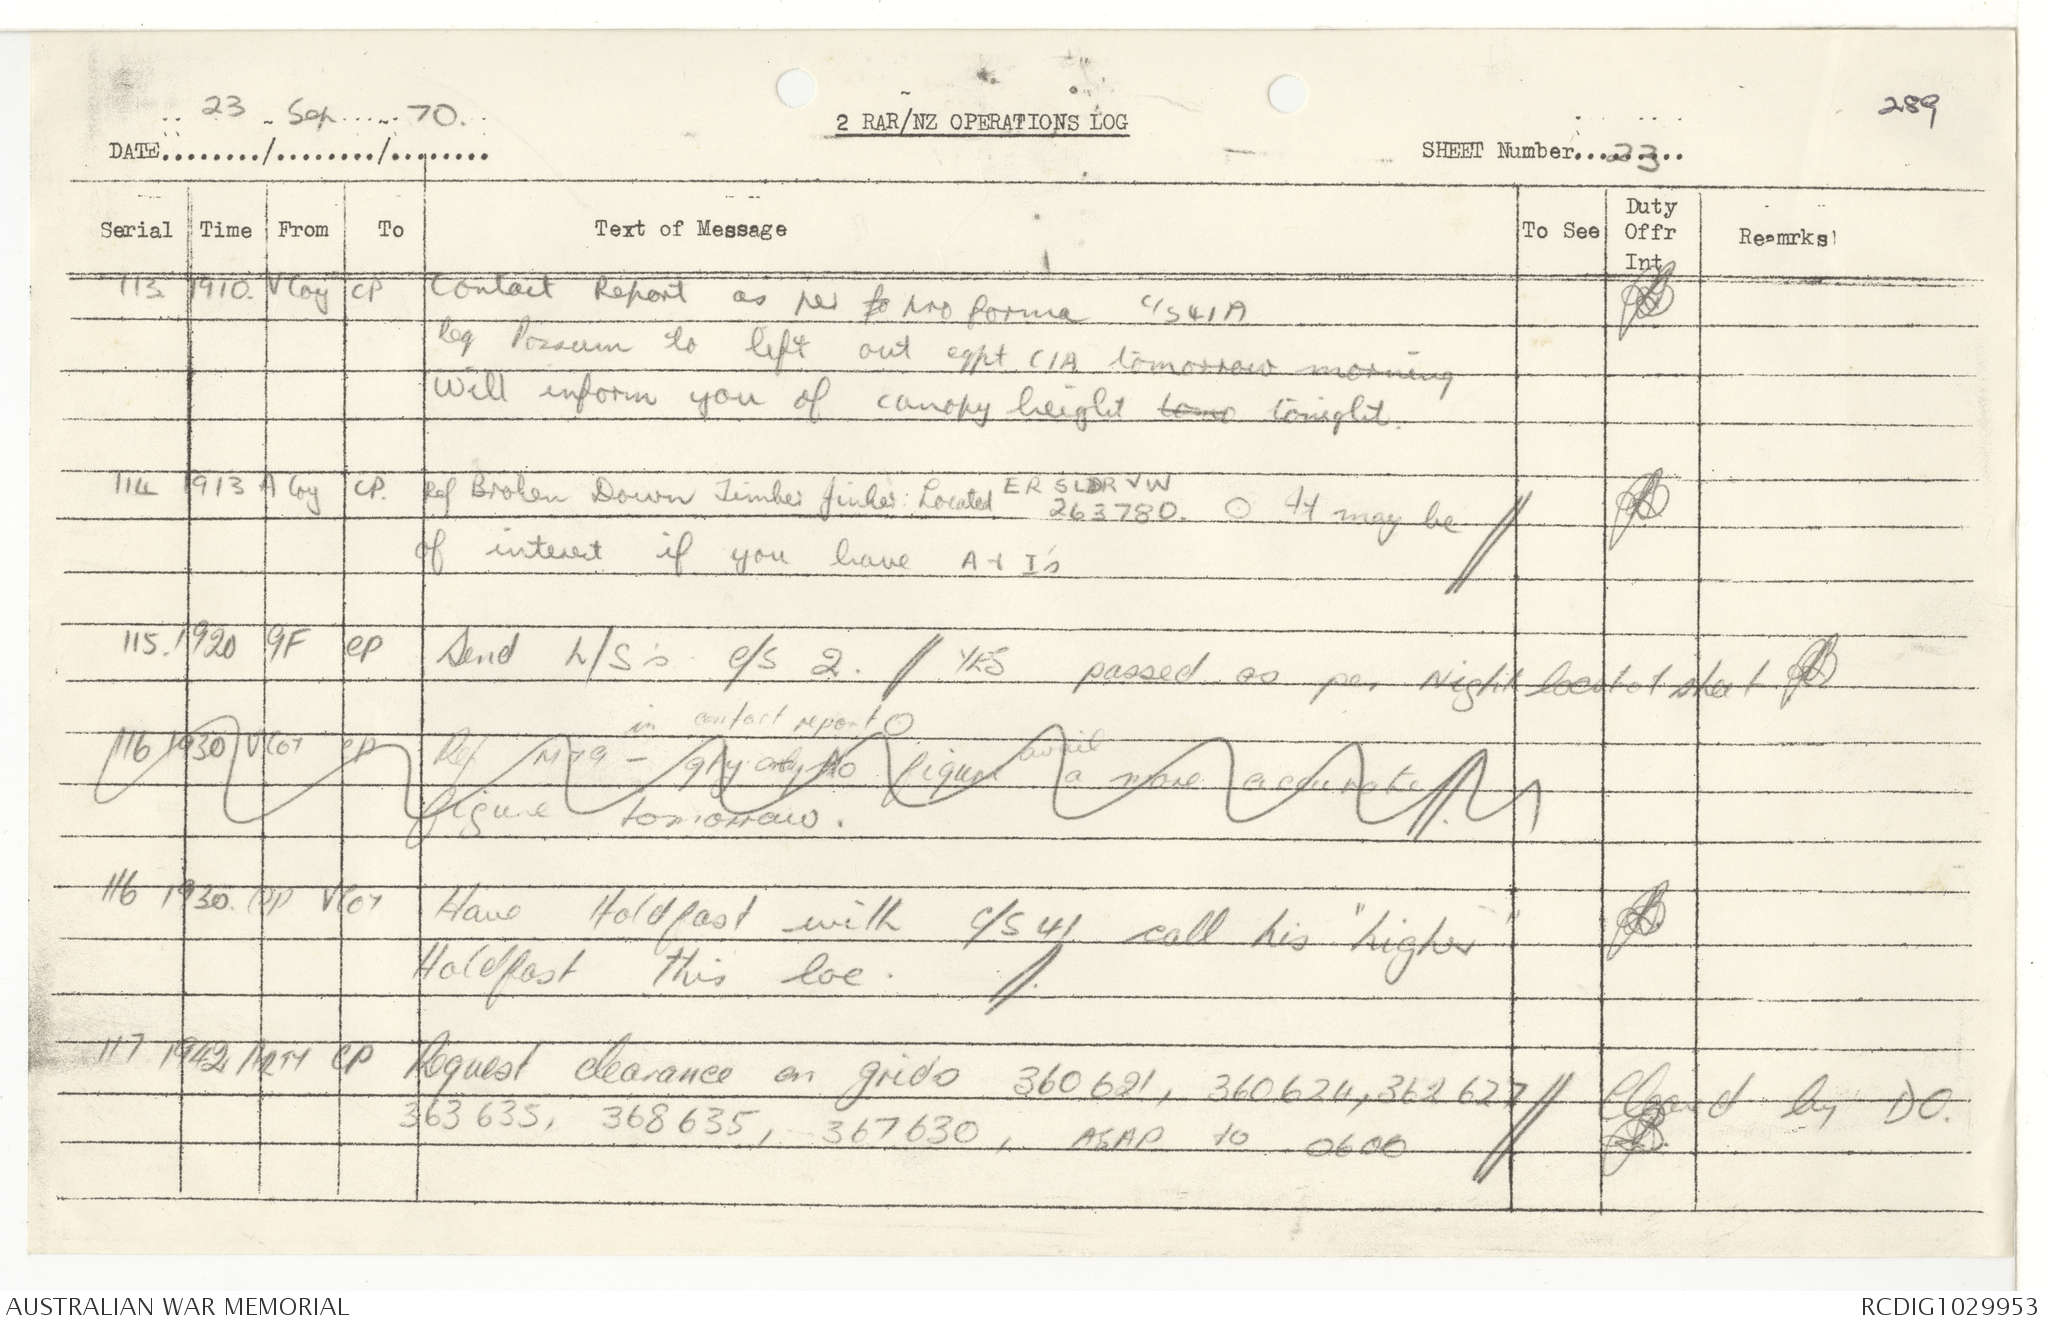 289
23 Sep 70.
2 RAR/NZ OPERATIONS LOG
DATE......../......../........
SHEET Number...23...
Serial Time From To Text of Message To See Duty Offr Int Remrks
113 1910. V Coy CP Contact Report as per fo pro forma C/S 41A
Req Possum to lift out eqpt C1A tomorrow morning
Will inform you of canopy height tomo tonight.
114 1913 A Coy CP. Ref Broken Down Timber Jinker: Located ER SLDR VW 263780. O It may be
of interest if you have A + I's
115. 1920 9F CP Send L/S's C/S 2. // YES passed as per Night locstat sheet
in contact report O
116 1930 V Coy CP Ref M79 - qty only no figure avail a more accurate
figure tomorrow.
116 1930. CP V Coy Have Holdfast with C/S 41 call his "higher"
Holdfast this loc. //
117 1942 Arty CP Request clearance on grids 360621, 360624, 362627 // Cleared by DO.
363635, 368635, 367630, ASAP to 0600
AUSTRALIAN WAR MEMORIAL
RCDIG1029953